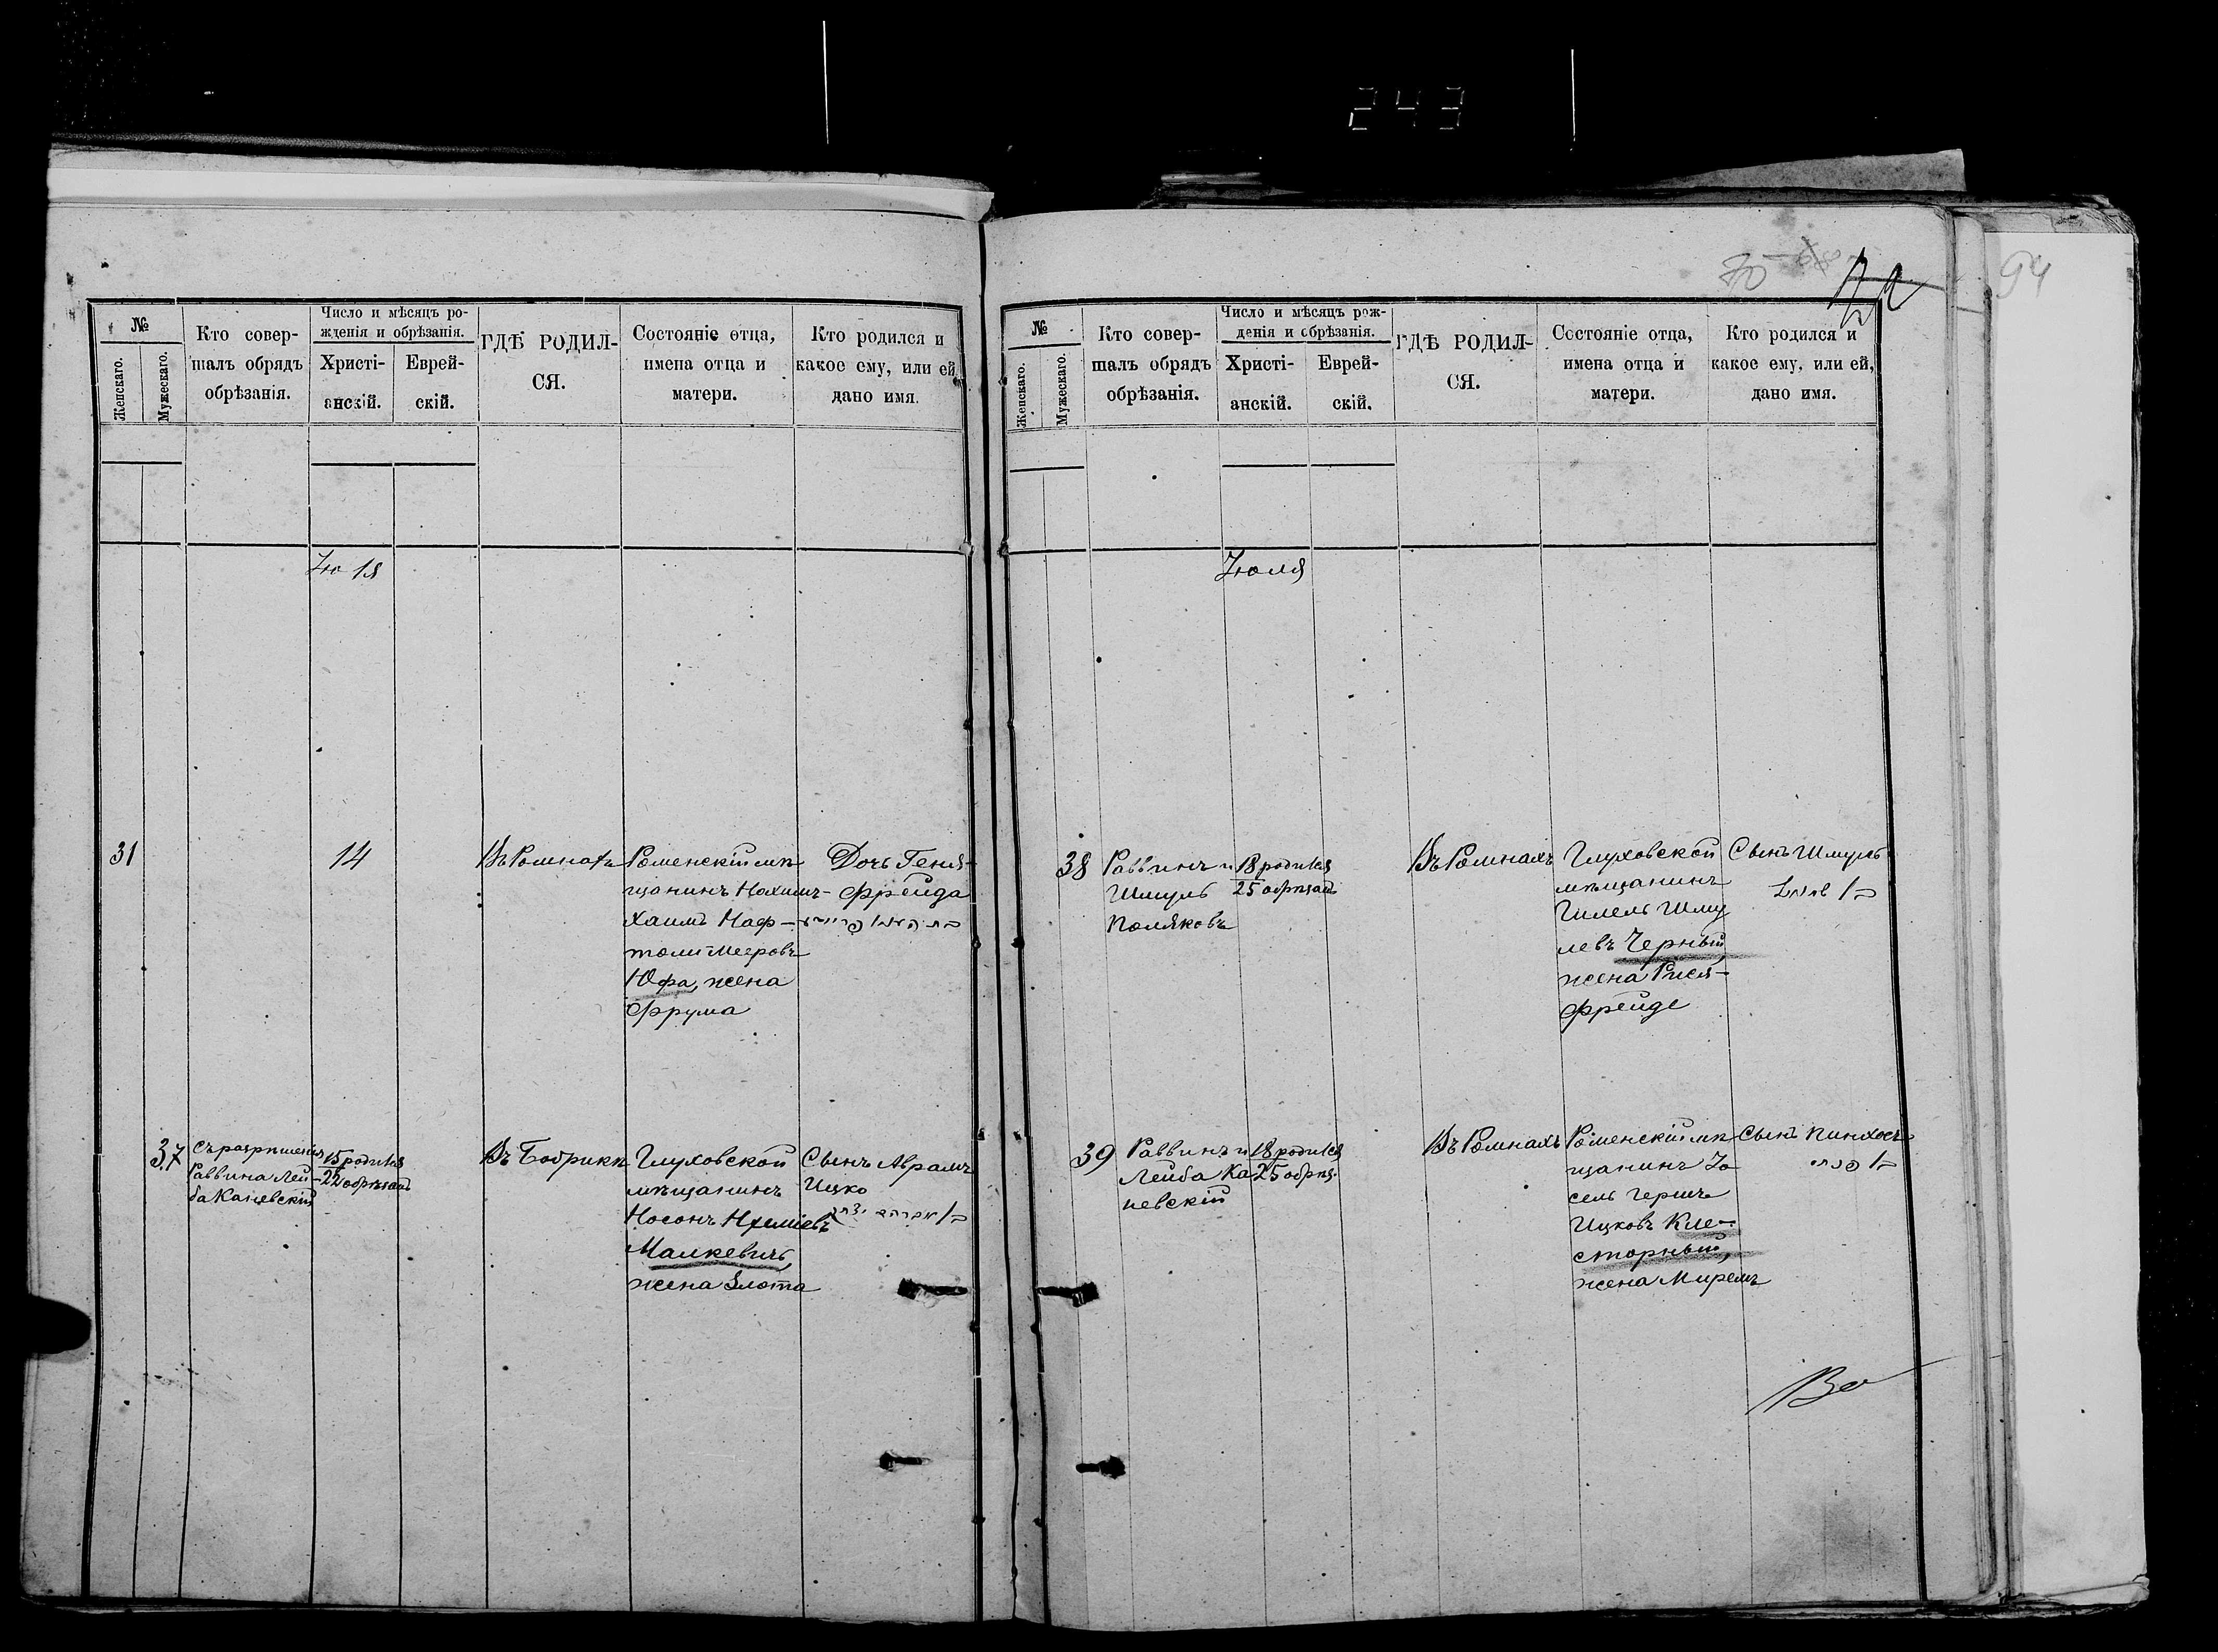 243
70
94
№
Женскаго.
Мужескаго.
Кто совер-
шалъ обрядъ
обрѣзанія.
Число и мѣсяцъ ро-
жденія и обрѣзанія.
Христі-
анскій.
Еврей-
скій.
ГДѢ РОДИЛ-
СЯ.
Состояніе отца,
имена отца и
матери.
Кто родился и
какое ему, или ей,
дано имя.
Іюля
31
14
Въ Ромнахъ
Роменскій мѣ-
щанинъ Нохимъ-
Хаимъ Наф-
толи Мееровъ
Юфа, жена
Фрума
Дочь Геня-
Фрейда
37
Съ разрѣшенія
Раввина Лей-
ба Каневскій
15 родился
22 обрѣзанъ
Въ Бобрикѣ
Глуховской
мѣщанинъ
Носонъ Нхеміевъ
Малкевичъ,
жена Злота
Сынъ Аврамъ
Ицко
נ/ אברהם יצחק
№
Женскаго.
Мужескаго.
Кто совер-
шалъ обрядъ
обрѣзанія.
Число и мѣсяцъ рож-
денія и обрѣзанія.
Христі-
анскій.
Еврей-
скій.
ГДѢ РОДИЛ-
СЯ.
Состояніе отца,
имена отца и
матери.
Кто родился и
какое ему, или ей,
дано имя.
Іюля
38
Раввинъ и
Шмуль
Поляковъ
18 родился
25 обрѣзанъ
Въ Ромнахъ
Глуховской
мѣщанинъ
Гилель Шму
левъ Черный,
жена Рися-
Фрейде
Сынъ Шмуль
39
Раввинъ и
Лейба Ка
невскій
18 родился
25 обрѣз.
Въ Ромнахъ
Роменскій мѣ
щанинъ Іо
сель Гершъ
Ицковъ Кле-
сторный,
жена Миремъ
Сынъ Пинхосъ